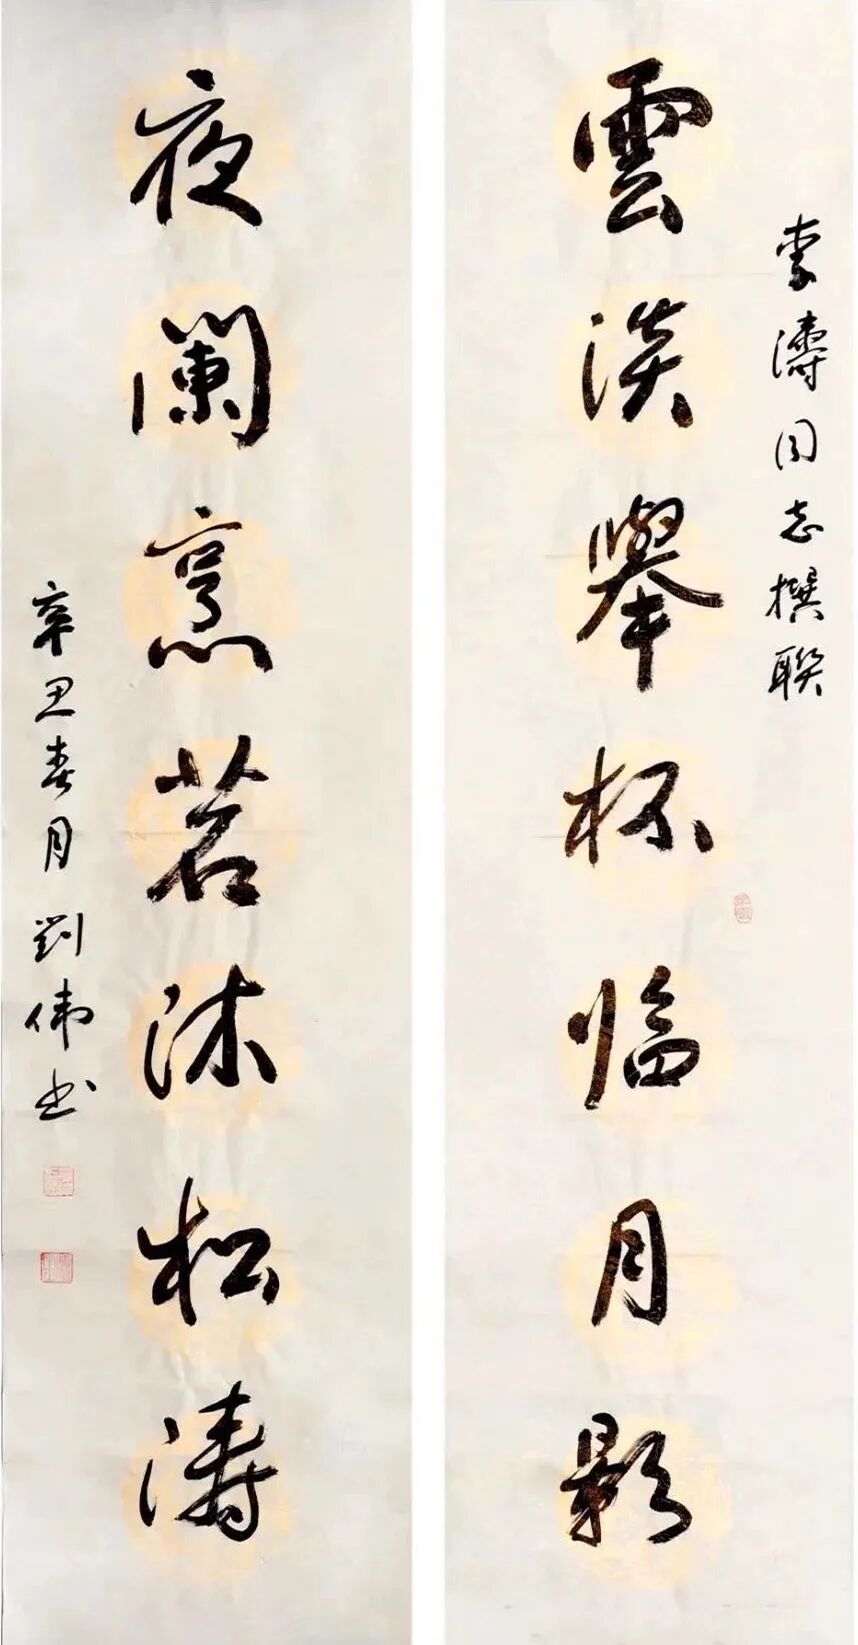 李濤同志撰聯
雲淡舉杯臨月影
夜闌烹茗沐松濤
辛丑春月劉偉书